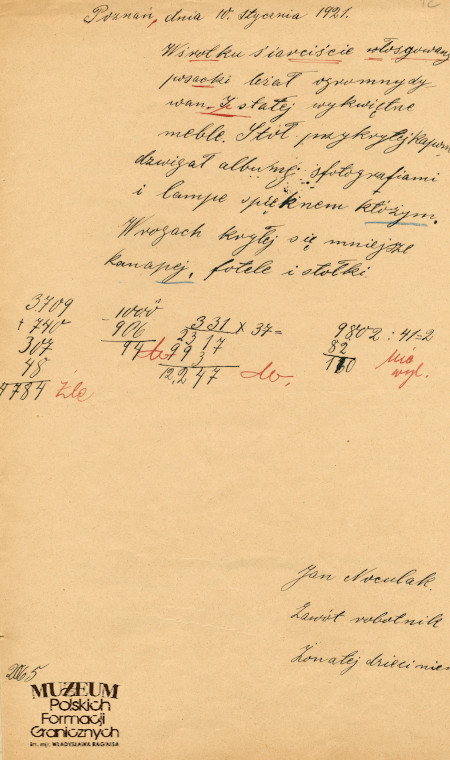 Poznań, dnia 10. stycznia 1921.
Wśrotku siarciście włosgowanej
posacki leżał ogromnydy
wan. Z stałej wykwiętne
meble. Stół przykrytej
dzwigał albumy sfotografiami
i lampe spięknem
Wrogach kryłej się mniejsze
kanapej, fotele i stołki.
3709
+ 740
307
48
4784 źle
1000
- 906
94 db
331 x 37=
2317
993
12,247 db.
9802 : 41=2
82
160
nie
wyl.
Jan Noculak.
Zawót robotnik
Żonatej dzieci niem
2065
MUZEUM
Polskich
Formacji
Granicznych
im. mjr. WŁADYSŁAWA RAGINISA